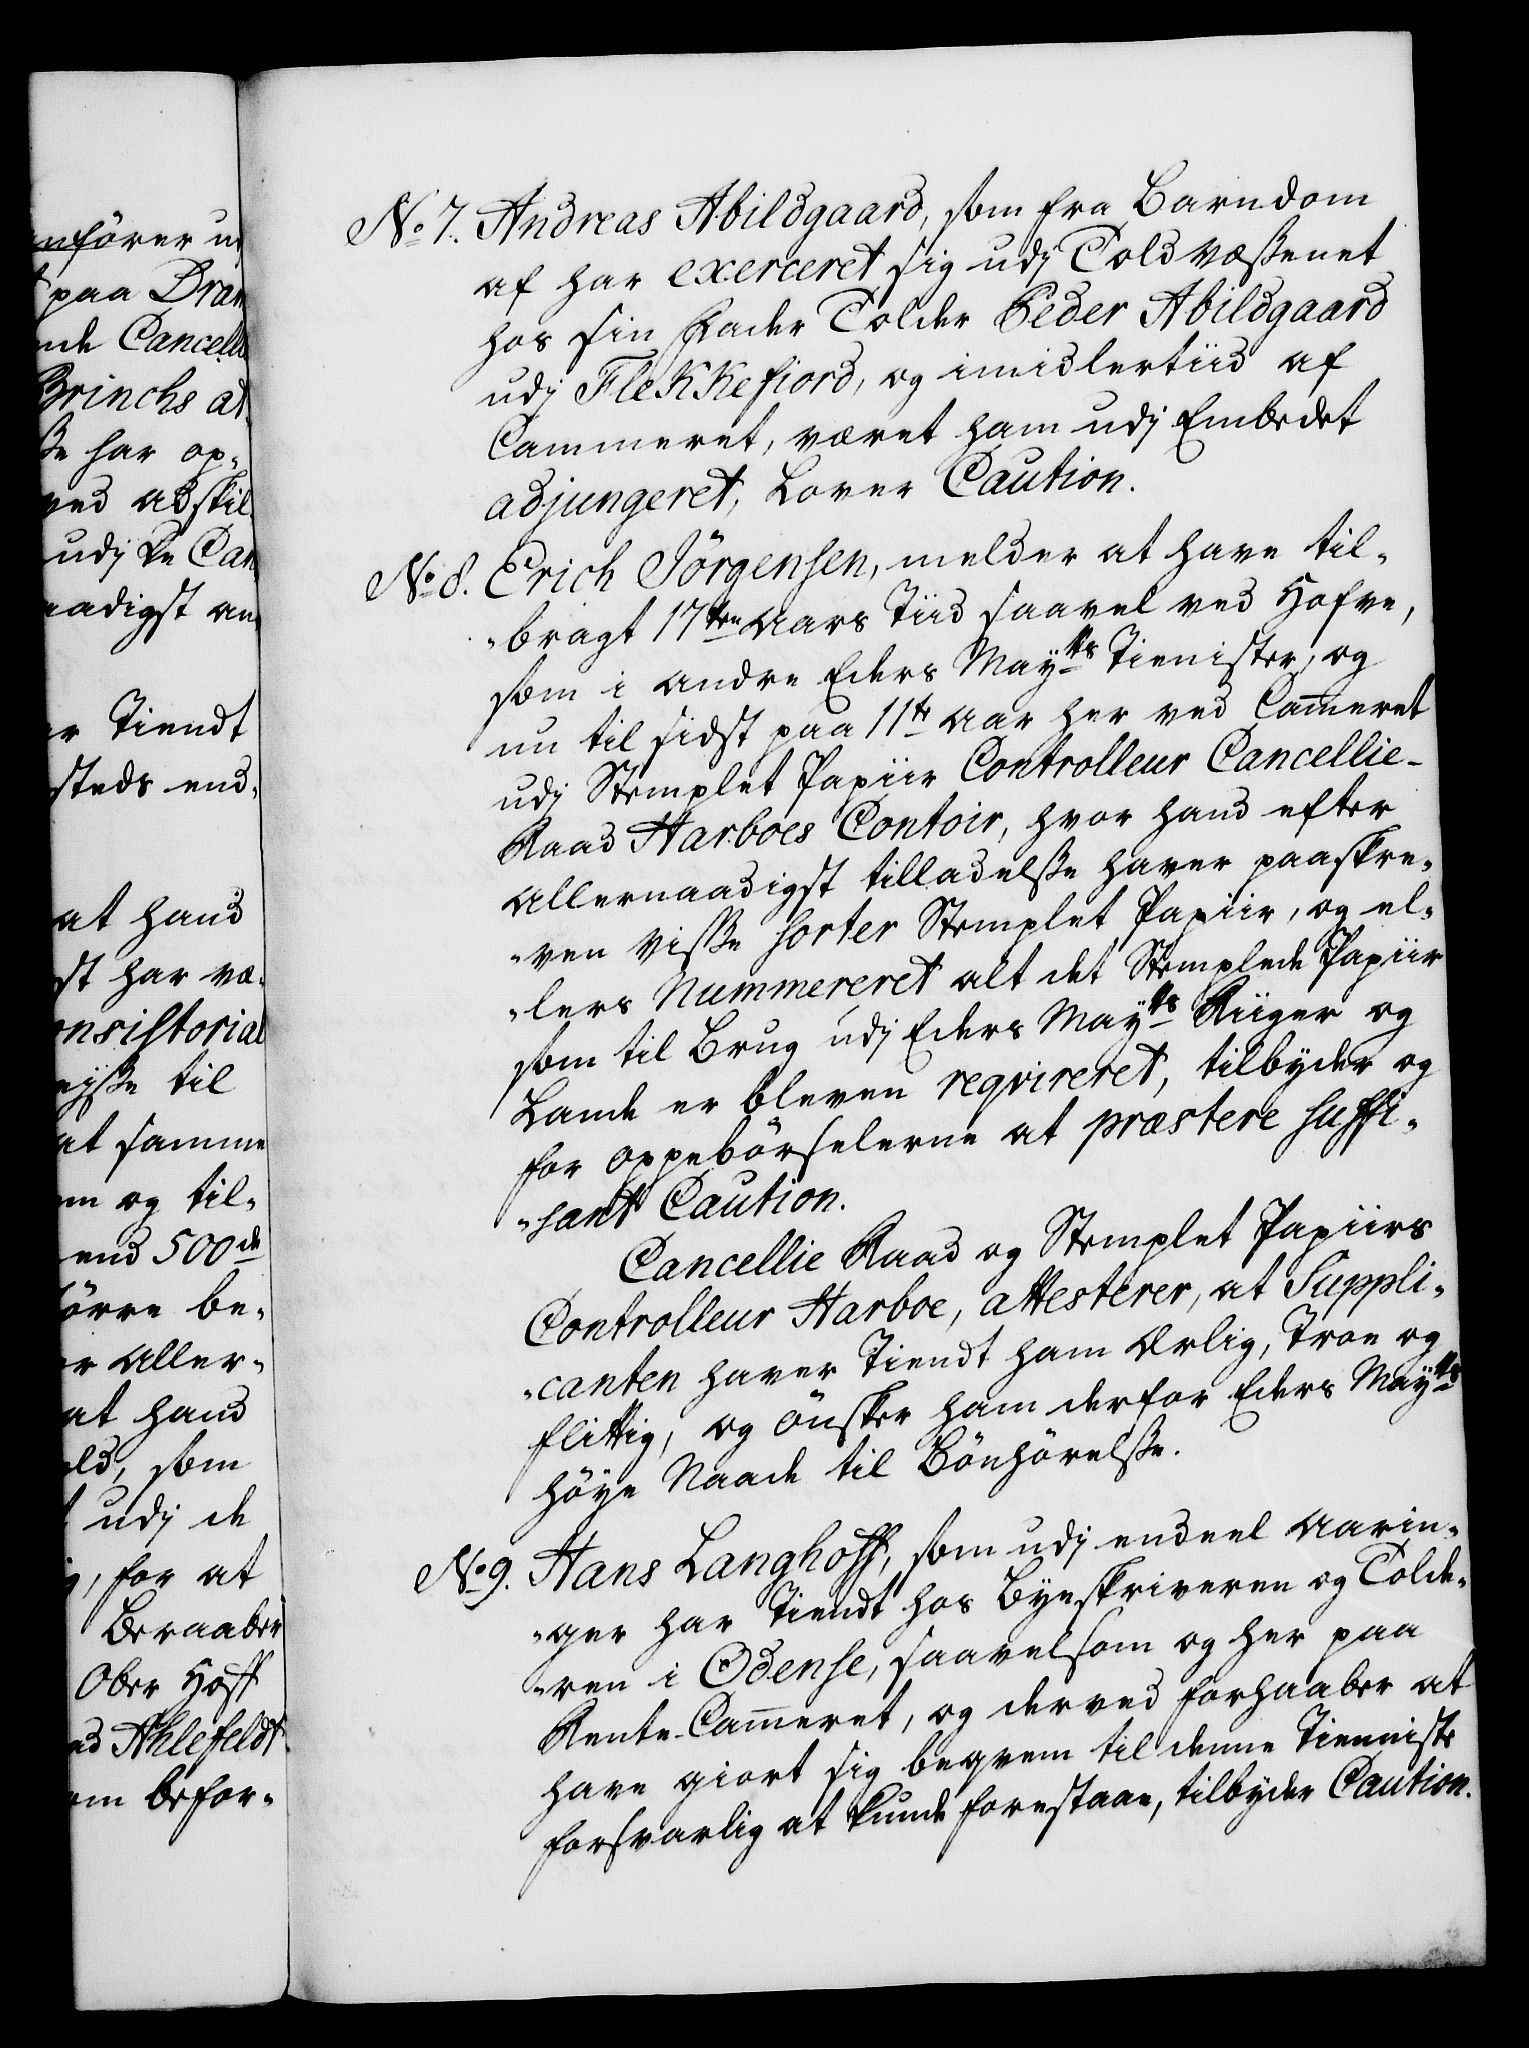 anförer u
paa Dram
nde Cancelli
Brinchs at
ße har op-
ved adskil
udj de Can
aadigst an
er Tiendt
steds end-
at hand
st har væ-
onsistorial
eyße til
at samme
em og til-
end 500de
større be-
er Aller-
at hand
eld, som
udj de
g, for at
Beraaber
Ober Hoff
nd Ahlefeldt
em befor-
No 7. Andreas Abildgaard, som fra Barndom
af har exerceret sig udj Told væßenet
hos sin Fader Tolder Peder Abildgaard
udj Flekkefiord, og imidlertiid af
Cammeret, været ham udj Embedet
adjungeret, Lover Caution.
No 8. Erich Jörgensen, melder at have til-
-bragt 17ten Aars Tiid saavel ved Hofve,
som i andre Eders Maytts Tienister, og
nu til sidst paa 11te Aar her ved Cam̄eret
udj Stemplet Papiir Controlleur Cancellie-
Raad Harboes Contoir, hvor hand efter
Allernaadigst tilladelße haver paaskre-
-ven viße sorter Stemplet Papiir, og el-
-lers Nummereret alt det Stemplede Papiir
som til Brug udj Eders Maytts Riiger og
Lande er bleven reqvireret, tilbyder og
for oppebörselerne at præstere suffi-
-sant Caution.
Cancellie Raad og Stemplet Papiirs
Controlleur Harboe, attesterer, at Suppli-
-canten haver Tiendt ham Ærlig, Troe og
flittig, og önsker ham derfor Eders Maytts
höye Naade til Bönhörelße.
No 9. Hans Langhoff, som udj endeel Aarin-
-ger har Tiendt hos Byeskriveren og Tolde-
-ren i Odense, saavelsom og her paa
Rente-Cam̄eret, og derved forhaaber at
have giort sig beqvem til denne Tienniste
forsvarlig at kunde forestaae, tilbyder Caution.